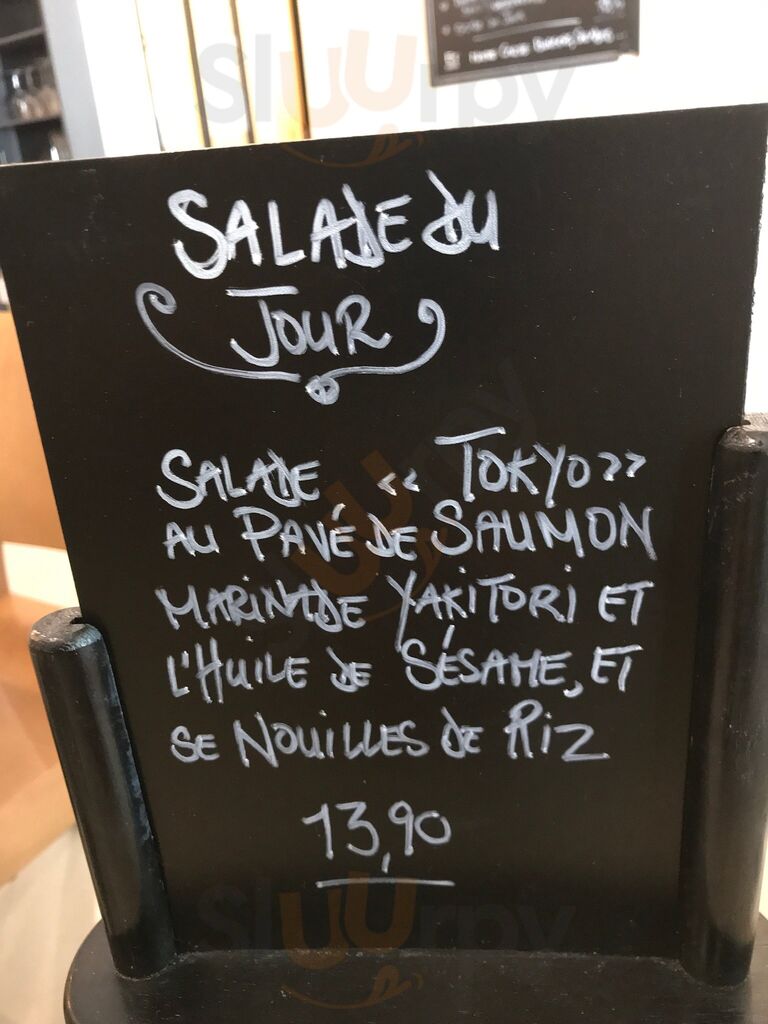 Sluurpy
SALADE DU
JOUR
SALADE « TOKYO »
AU PAVÉ DE SAUMON
MARINADE YAKITORI ET
L'HUILE DE SÉSAME, ET
SE NOUILLES DE RIZ
13,90
Sluurpy